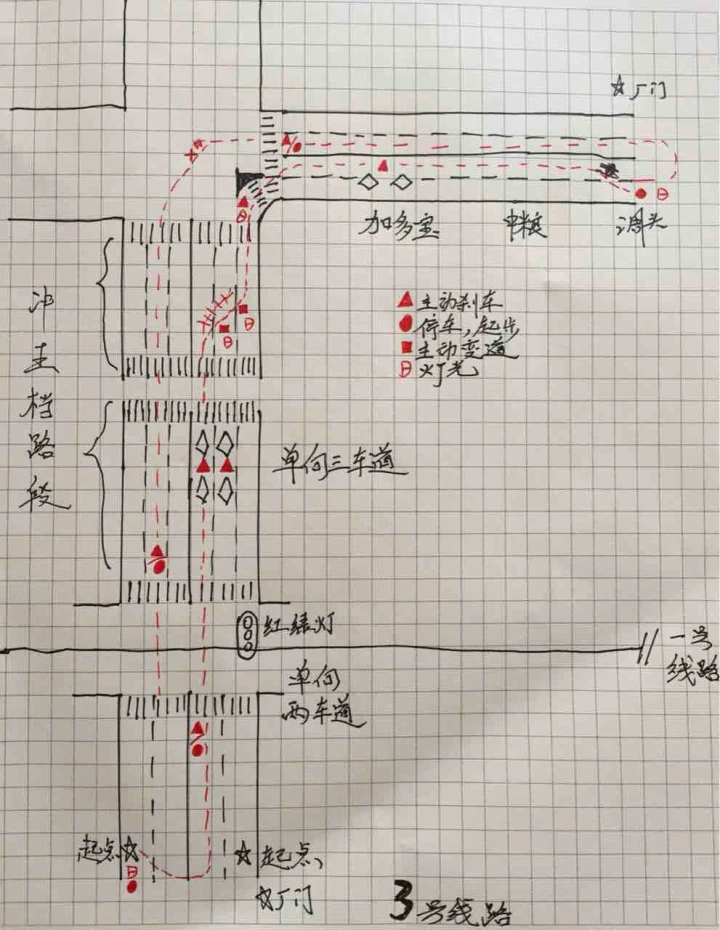 ☆厂门
加多宝
中粮
调头
主动刹车
停车,起步
主动变道
灯光
冲主档路段
单向三车道
红绿灯
一号
线路
单向
两车道
起点
起点、
☆厂门
3号线路